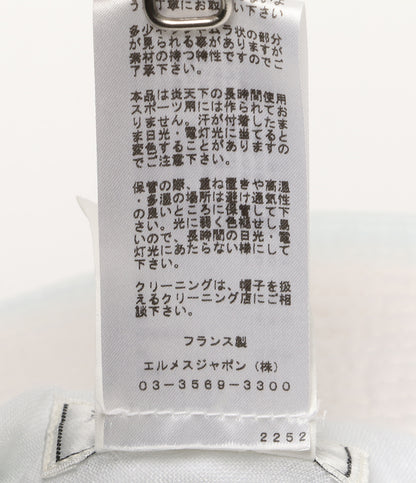 う丁寧にお取り扱い下さい
多少
が見られる事がありますが
素材の持つ特性ですのでご
了承下さい。
本品は炎天下の長時間使用
スポーツ用には作られてお
りません。汗が付着したま
ま日光・電灯光に当てると
変色することがありますの
でご注意下さい。
保管の際、重ね置きや高温
・多湿の場所は避け通気性
の良いところに保管して下
さい。光に弱く色褪せし易
いので、長時間の日光・電
灯光にあたらない様にして
下さい。
クリーニングは、帽子を扱
えるクリーニング店にご相
談下さい。
フランス製
エルメスジャポン(株)
03-3569-3300
2252